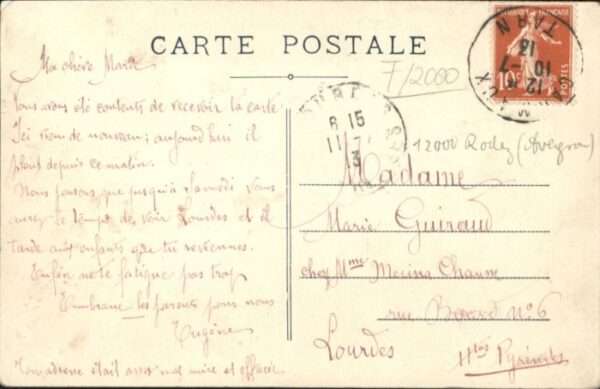 CARTE POSTALE
Ma chère Marie
F/2000
10c
POSTES
TARN
12
10-7
13
Nous avons été contents de recevoir la carte
Ici rien de nouveau; aujourd'hui il
pleut depuis ce matin.
Nous pensons que jusqu'à Samedi vous
aurez le temps de voir Lourdes et il
tarde aux enfants que tu reviennes.
Enfin ne te fatigue pas trop
Embrasse les parents pour nous
Eugène
Ton adresse était assez mal mise et effacée
8 15
11-7
13
12000 Rodez (Aveyron)
Madame
Marie Guiraud
chez Mme
rue N° 6
Lourdes
Htes Pyrénées